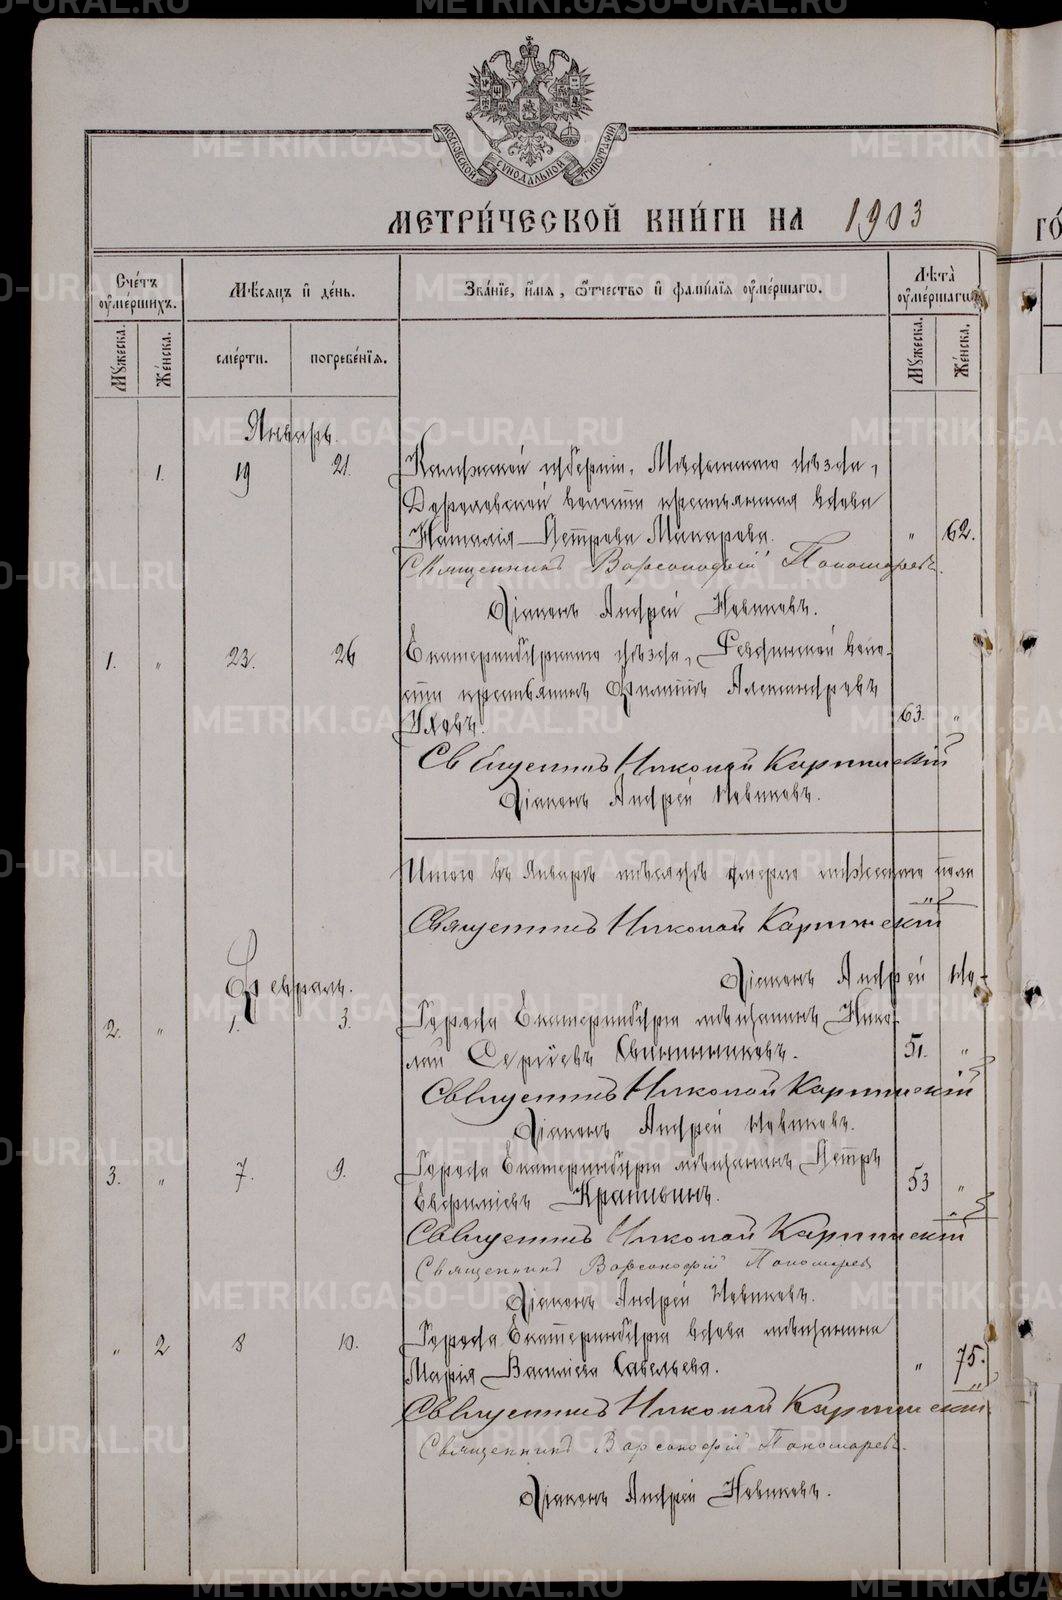 МОСКОВСКОЙ СѴНОДАЛЬНОЙ ТИПОГРАФІИ
МЕТРИ́ЧЕСКОЙ КНИ́ГИ НА 1903
Сче́тъ ᲂу҆ме́ршихъ.
Мѣ́сяцъ и҆ де́нь.
Зва́нїе, и҆́мя, ѻ҆́тчество и҆ фами́лїя ᲂу҆ме́ршагѡ.
Лѣ́та ᲂу҆ме́ршагѡ
Мꙋ́жеска.
Же́нска.
сме́рти.
погребе́нїя.
Мꙋ́жеска.
Же́нска.
Январь.
1. 19 21. Калужской губерніи, уѣзда,
волости крестьянская вдова
Наталія Петрова Макарова. " 62.
Священникъ Варсонофій Пономаревъ.
Діаконъ Андрей Новиковъ.
1. " 23. 26 Екатеринбургскаго уѣзда, Ревдинской воло-
сти крестьянинъ Филиппъ Александровъ
63. "
Священникъ Николай Карпинскій
Діаконъ Андрей Новиковъ.
Итого въ Январѣ мѣсяцѣ умерло мужескаго пола
"
Священникъ Николай Карпинскій
Діаконъ Андрей Но-
Февраль.
2. " 1. 3. Города Екатеринбурга мѣщанинъ Нико-
лай Сергіевъ Свининниковъ. 51. "
Священникъ Николай Карпинскій
Діаконъ Андрей Новиковъ.
3. " 7. 9. Города Екатеринбурга мѣщанинъ Петръ
Евфиміевъ Крапивинъ. 53 "
Священникъ Николай Карпинскій
Священникъ Варсонофій Пономарев
Діаконъ Андрей Новиковъ.
" 2 8 10. Города Екатеринбурга вдова мѣщанина
Марія Васильева Савельева. " 75.
Священникъ Николай Карпинскій
Священникъ Варсонофій Пономаревъ.
Діаконъ Андрей Новиковъ.
METRIKI.GASO-URAL.RU